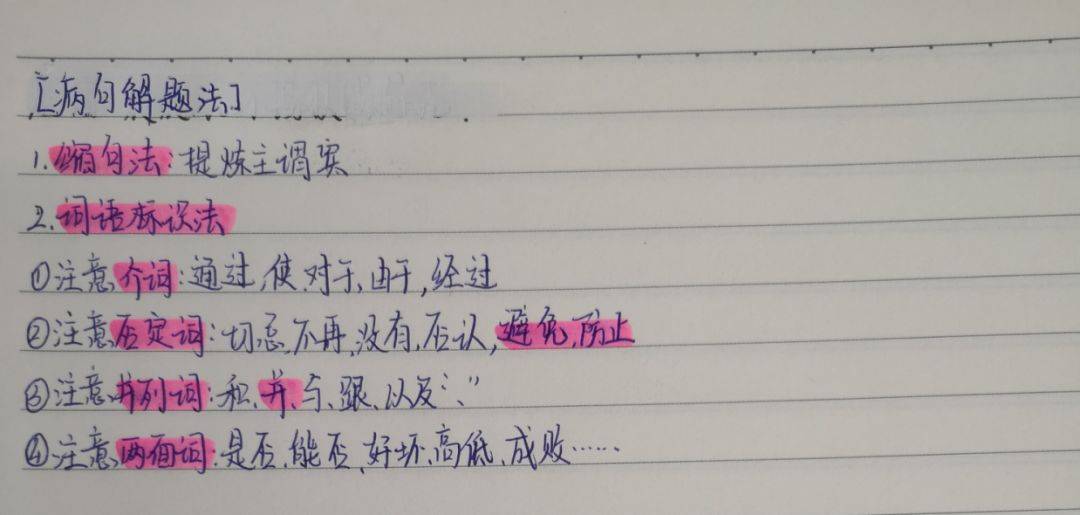 [病句解题法]
1.缩句法:提炼主谓宾
2.词语标识法
①注意介词:通过,使,对于,由于,经过
②注意否定词:切忌,不再,没有,否认,避免,防止
③注意并列词:和、并、与、跟、以及"、"
④注意两面词:是否、能否、好坏、高低、成败……